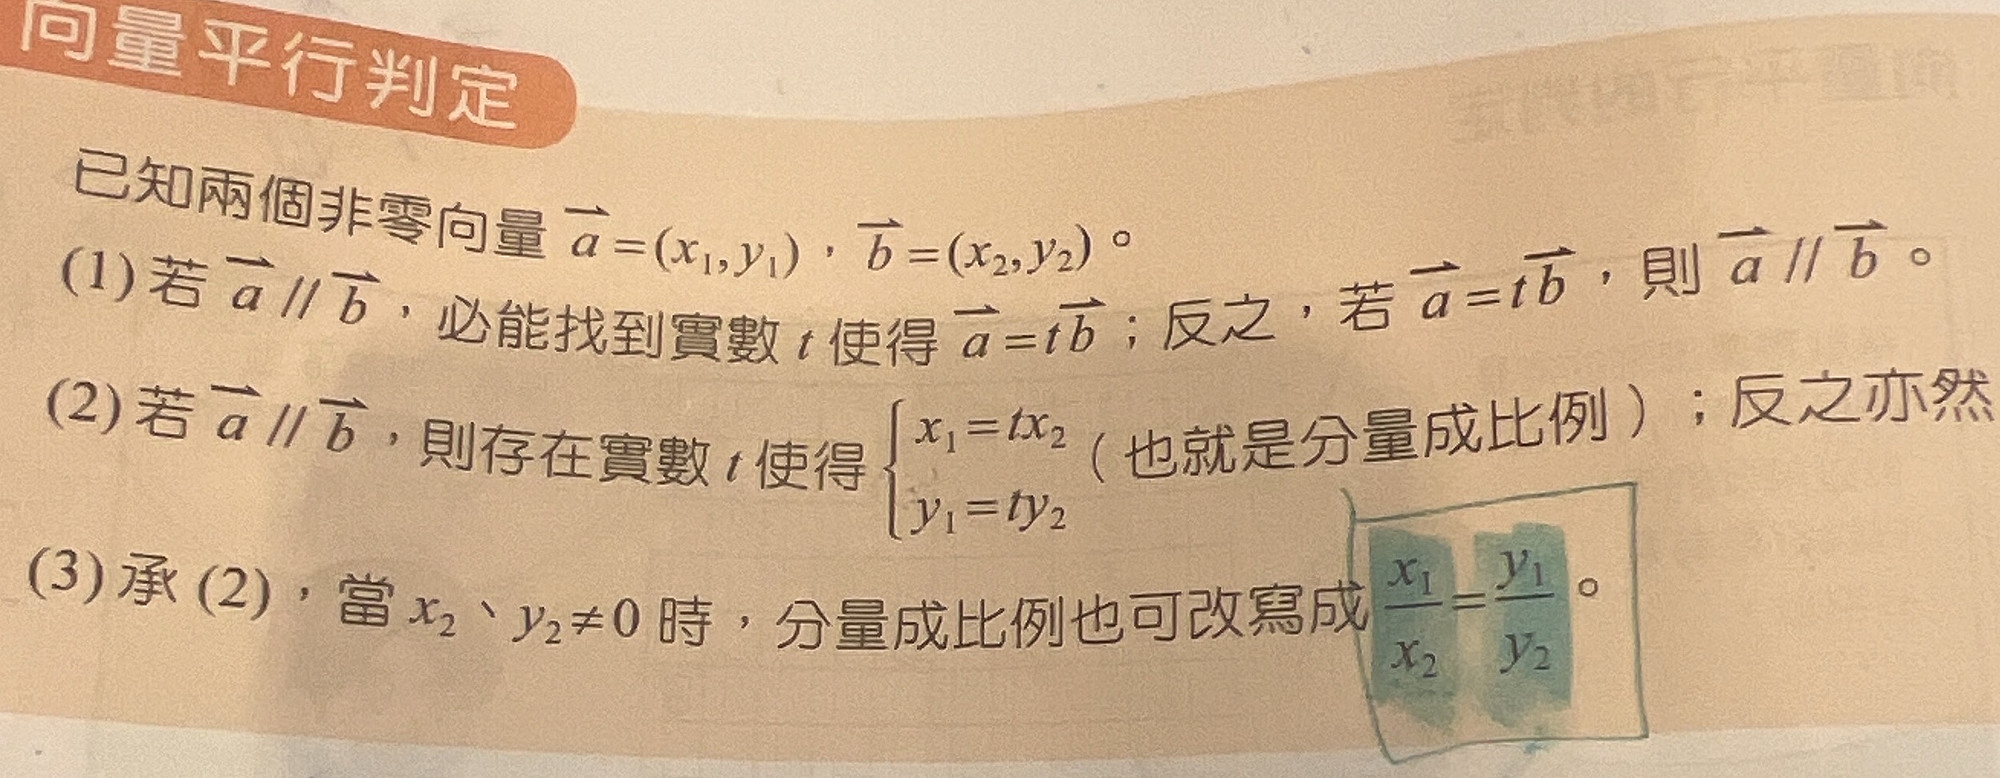 向量平行判定
已知兩個非零向量 a⃗=(x₁,y₁),b⃗=(x₂,y₂)。
(1)若 a⃗//b⃗,必能找到實數 t 使得 a⃗=tb⃗;反之,若 a⃗=tb⃗,則 a⃗//b⃗。
(2)若 a⃗//b⃗,則存在實數 t 使得 { x₁=tx₂ y₁=ty₂ (也就是分量成比例);反之亦然
(3)承(2),當 x₂、y₂≠0 時,分量成比例也可改寫成 x₁/x₂=y₁/y₂。
向量平行的判定